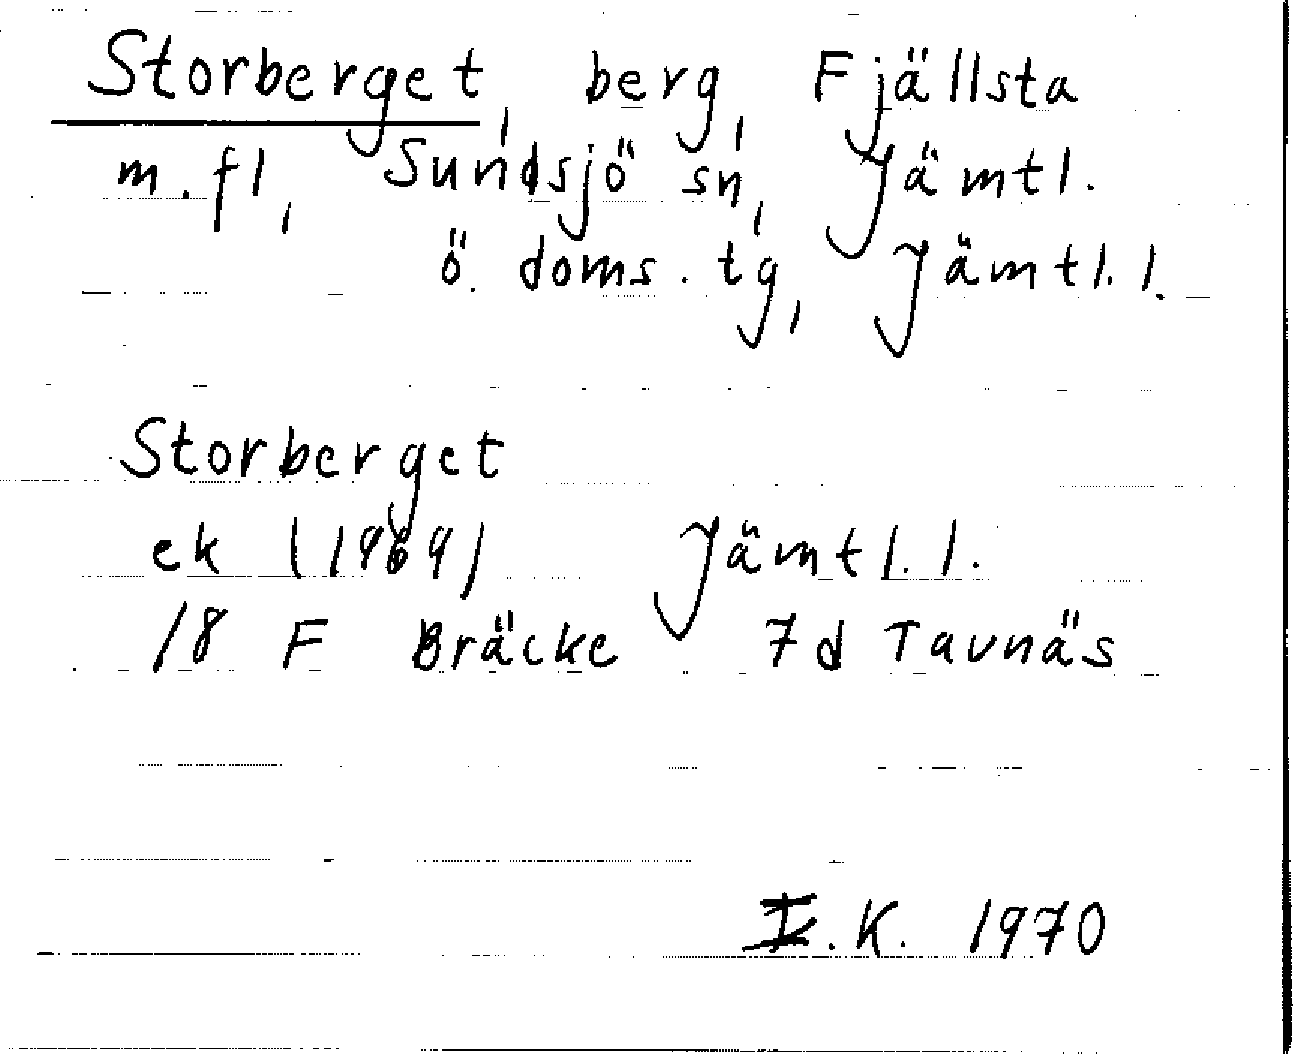 Storberget, berg, Fjällsta
m.fl, Sundsjö sn, Jämtl.
ö. doms.tg, Jämtl.l.
Storberget
ek (1969) Jämtl.l.
18 F Bräcke 7d Tavnäs
I.K. 1970